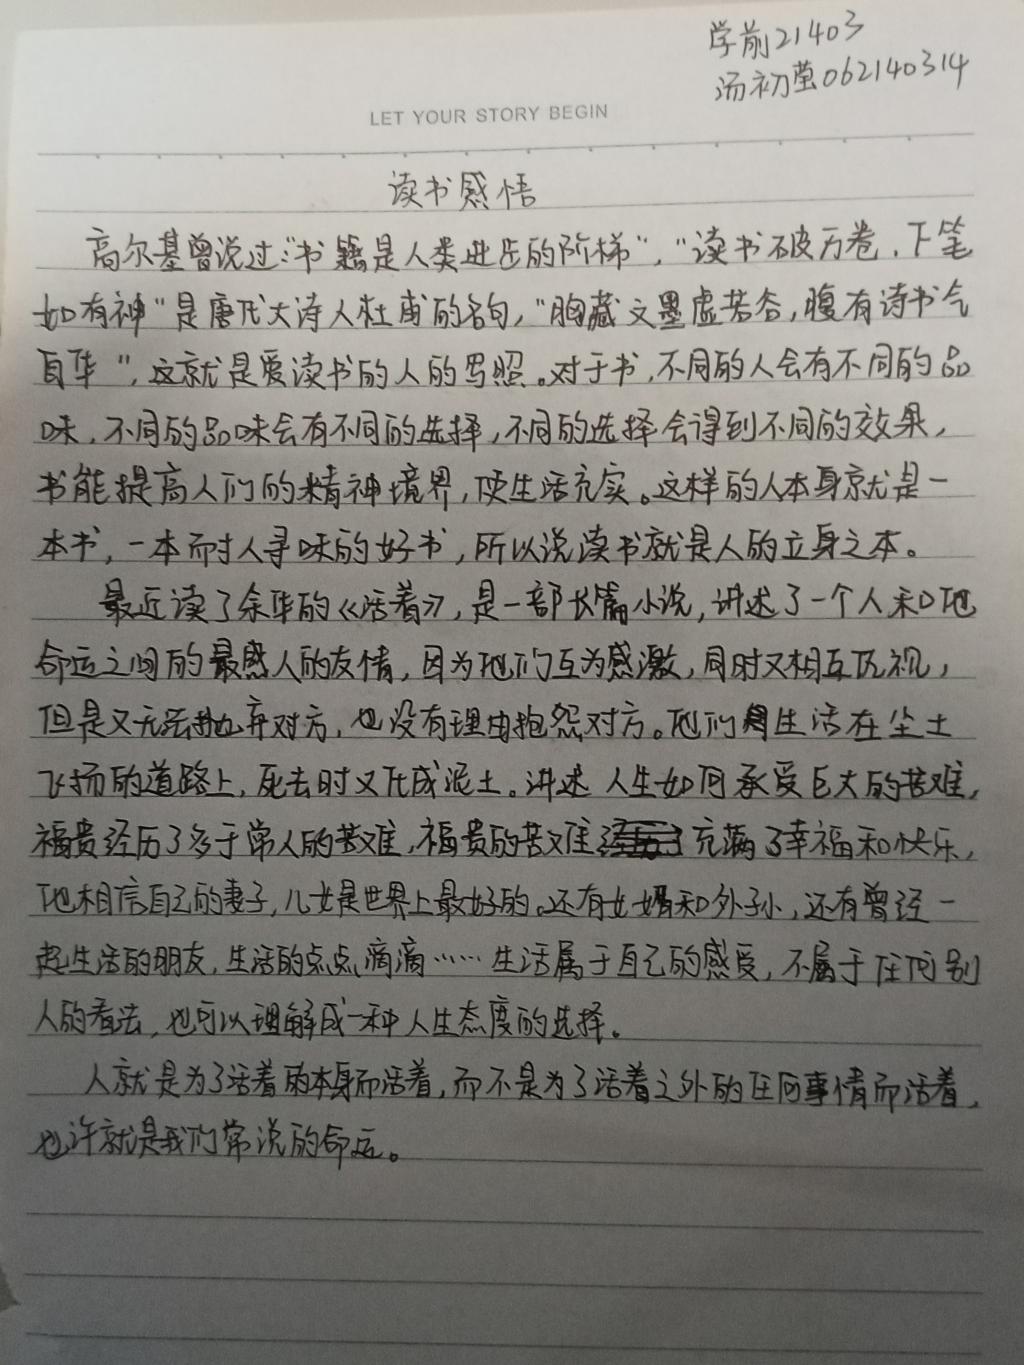 学前21403
汤初莹062140314
LET YOUR STORY BEGIN
读书感悟
高尔基曾说过:"书籍是人类进步的阶梯","读书破万卷,下笔
如有神"是唐代大诗人杜甫的名句,"胸藏文墨虚若谷,腹有诗书气
自华",这就是爱读书的人的写照。对于书,不同的人会有不同的品
味,不同的品味会有不同的选择,不同的选择会得到不同的效果,
书能提高人们的精神境界,使生活充实。这样的人本身就是一
本书,一本耐人寻味的好书,所以说读书就是人的立身之本。
最近读了余华的《活着》,是一部长篇小说,讲述了一个人和他
命运之间的最感人的友情,因为他们互为感激,同时又相互仇视,
但是又无法抛弃对方,也没有理由抱怨对方。他们生活在尘土
飞扬的道路上,死去时又化成泥土。讲述人生如何承受巨大的苦难,
福贵经历了多于常人的苦难,福贵的苦难充满了幸福和快乐,
他相信自己的妻子,儿女是世界上最好的。还有女婿和外子小,还有曾经一
起生活的朋友,生活的点点滴滴……生活属于自己的感受,不属于任何别
人的看法,也可以理解成一种人生态度的选择。
人就是为了活着的本身而活着,而不是为了活着之外的任何事情而活着,
也许就是我们常说的命运。